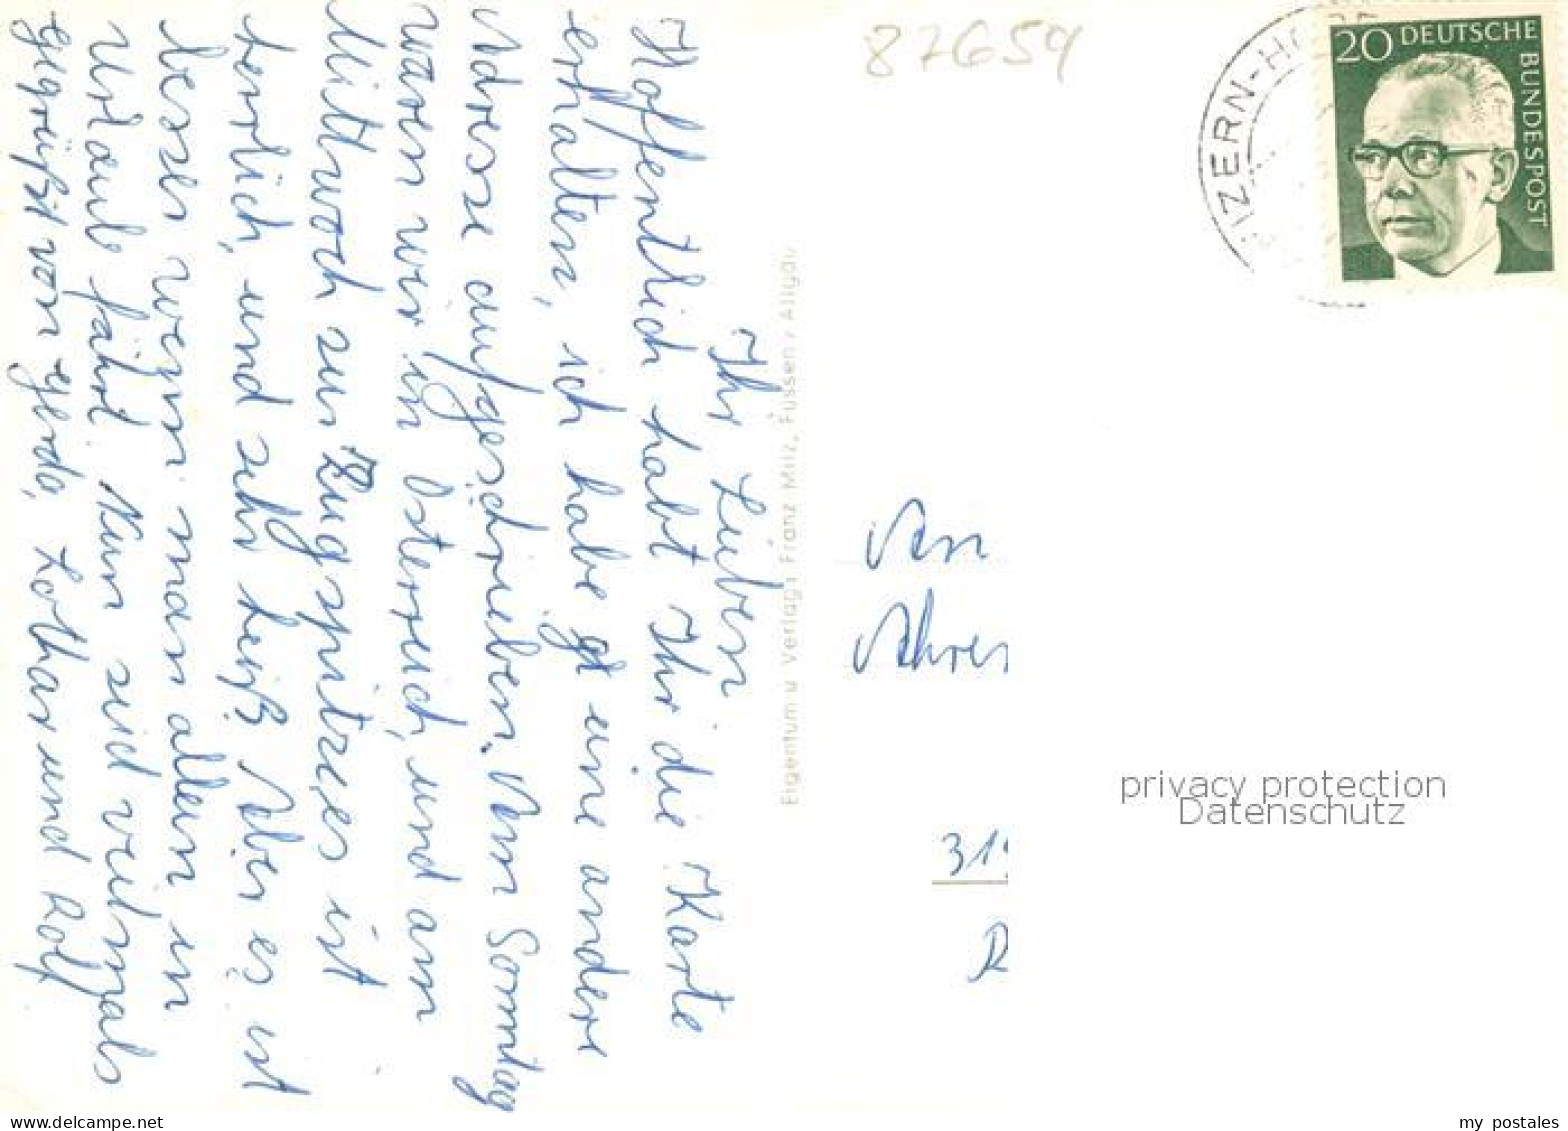 Ihr Lieben
Hoffentlich habt Ihr die Karte
erhalten, ich habe eine andere
Adresse aufgeschrieben. Am Sonntag
waren wir in Österreich, und am
Mittwoch zur Zugspitze, es ist
herrlich, und sehr heiß Aber es ist
besser wenn man allein in
Urlaub fährt. Nun seid vielmals
gegrüßt von Gerda, Lothar und Rolf
Eigentum u Verlag: Franz Milz, Füssen / Allgäu
87659
IZERN-HO
20 DEUTSCHE
BUNDESPOST
An
Ahren
31
R
privacy protection
Datenschutz
my postales